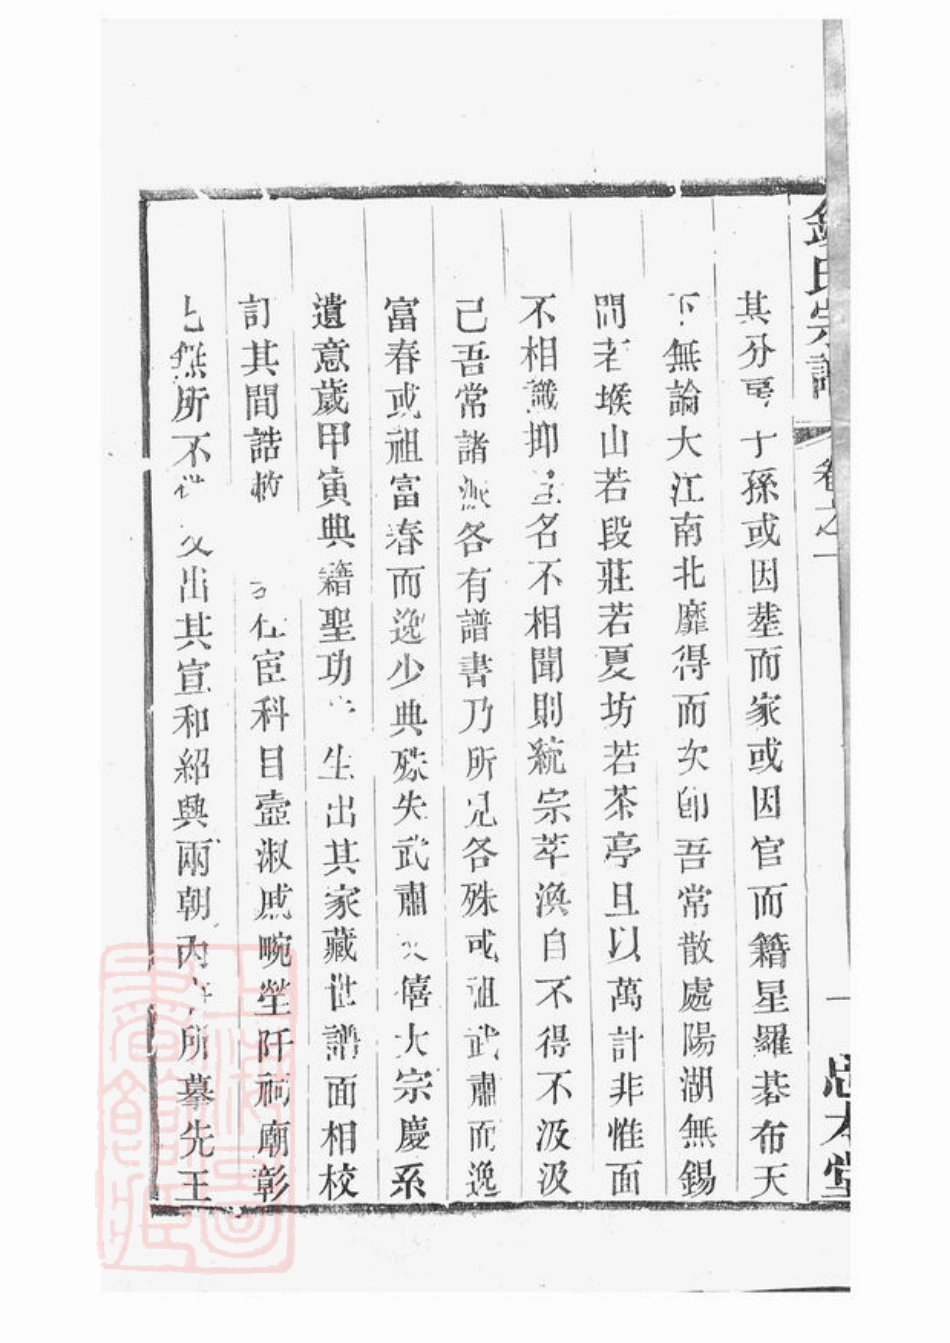 錢氏宗譜 卷之一 一 忠本堂
其分子孫或因塟而家或因官而籍星羅碁布天
下無論大江南北靡得而次即吾常散處陽湖無錫
間若堠山若段莊若夏坊若茶亭且以萬計非惟面
不相識抑名不相聞則統宗萃渙自不得不汲汲
己吾常諸派各有譜書乃所見各殊或祖武肅而逸
富春或祖富春而逸少典殊失武肅大宗慶系
遺意歲甲寅典籍聖功生出其家藏世譜面相校
訂其間誥敕仕宦科目壼淑戚畹塋阡祠廟彰
無所不又出其宣和紹興兩朝內所摹先王
上海圖書館藏